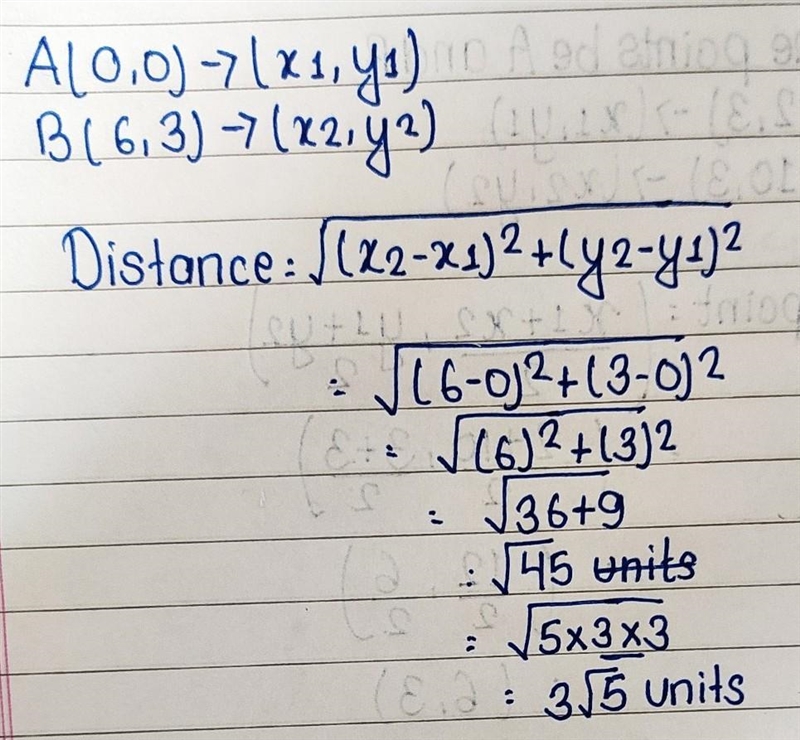 A(0,0)→(x1,y1)
B(6,3)→(x2,y2)
Distance=√(x2-x1)²+(y2-y1)²
=√(6-0)²+(3-0)²
=√(6)²+(3)²
=√36+9
=√45 units
=√5×3×3
=3√5 units